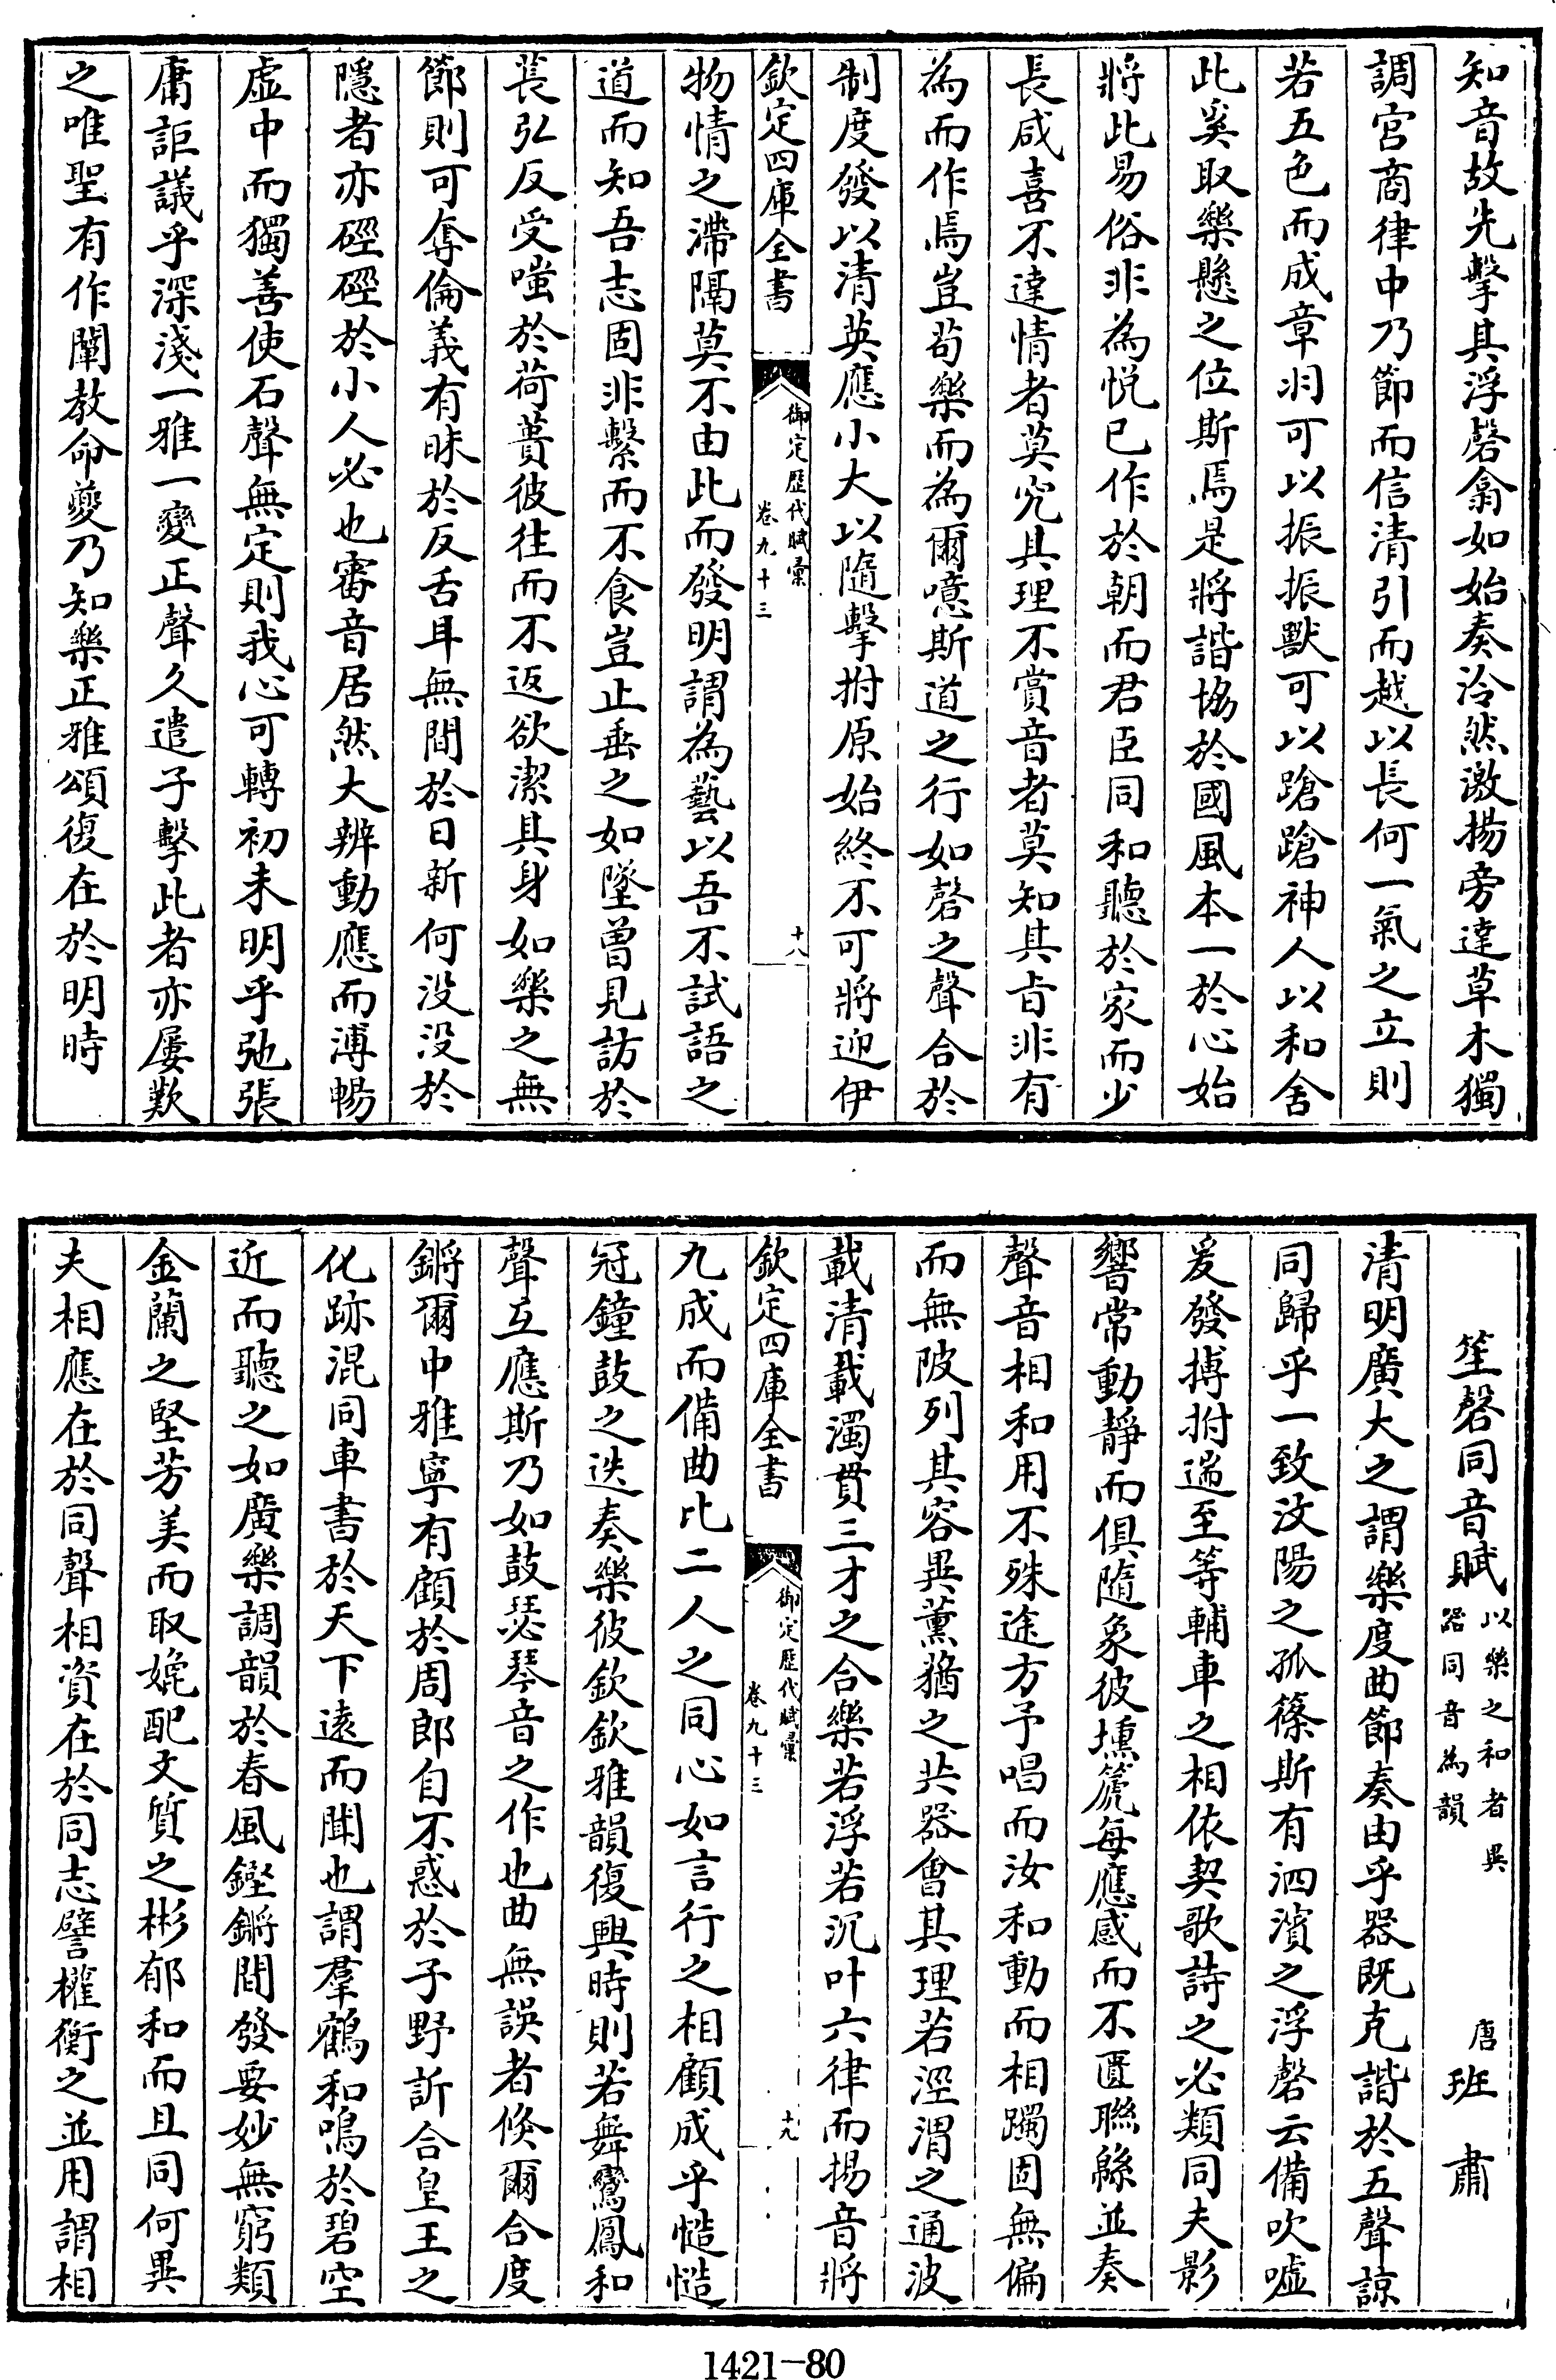 知音故先擊其浮磬翕如始奏泠然激揚旁達草木獨
調宮商律中乃節而信清引而越以長何一氣之立則
若五色而成章羽可以振振獸可以蹌蹌神人以和舍
此奚取樂懸之位斯焉是將諧協於國風本一於心始
將此易俗非為悦已作於朝而君臣同和聽於家而少
長咸喜不達情者莫究其理不賞音者莫知其旨非有
為而作焉豈苟樂而為爾噫斯道之行如磬之聲合於
制度發以清英應小大以隨擊拊原始終不可將迎伊
欽定四庫全書
御定歷代賦彙
卷九十三
十八
物情之滯隔莫不由此而發明謂為藝以吾不試語之
道而知吾志固非繫而不食豈止垂之如墜曽見訪於
萇弘反受嗤於荷蕢彼往而不返欲潔其身如樂之無
節則可奪倫義有昧於反舌耳無間於日新何没没於
隱者亦硜硜於小人必也審音居然大辨動應而溥暢
虛中而獨善使石聲無定則我心可轉初未明乎弛張
庸詎議乎深淺一雅一變正聲久遣子擊此者亦屢歎
之唯聖有作闡教命夔乃知樂正雅頌復在於明時
笙磬同音賦 以樂之和者異
器同音為韻
唐班肅
清明廣大之謂樂度曲節奏由乎器既克諧於五聲諒
同歸乎一致汶陽之孤篠斯有泗濱之浮磬云備吹噓
爰發搏拊遄至等輔車之相依契歌詩之必類同夫影
響常動靜而俱隨象彼壎箎每應感而不匱聯緜並奏
聲音相和用不殊途方予唱而汝和動而相躅固無偏
而無陂列其容異薰蕕之共器會其理若涇渭之通波
載清載濁貫三才之合樂若浮若沉叶六律而揚音將
欽定四庫全書
御定歷代賦彙
卷九十三
十九
九成而備曲比二人之同心如言行之相顧成乎慥慥
冠鐘鼓之迭奏樂彼欽欽雅韻復興時則若舞鸞鳳和
聲互應斯乃如鼓瑟琴音之作也曲無誤者倏爾合度
鏘爾中雅寧有顧於周郎自不惑於子野訢合皇王之
化跡混同車書於天下遠而聞也謂羣鶴和鳴於碧空
近而聽之如廣樂調韻於春風鏗鏘間發要妙無窮類
金蘭之堅芳美而取娧配文質之彬郁和而且同何異
夫相應在於同聲相資在於同志譬權衡之並用謂相
1421-80